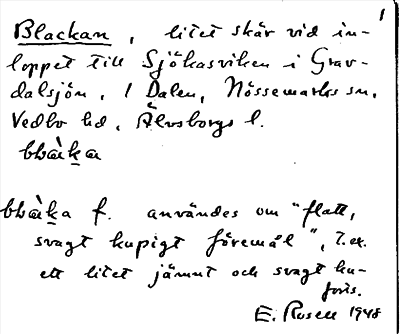 1
Blackan, litet skär vid in-
loppet till Sjökasviken i Grav-
dalsjön. / Dalen, Nössemarks sn.
Vedbo hd. Älvsborgs l.
bbàka
bbàka f. användes om "flatt,
svagt kupigt föremål", t.ex.
ett litet jämnt och svagt ku-
E. Rosell 1948